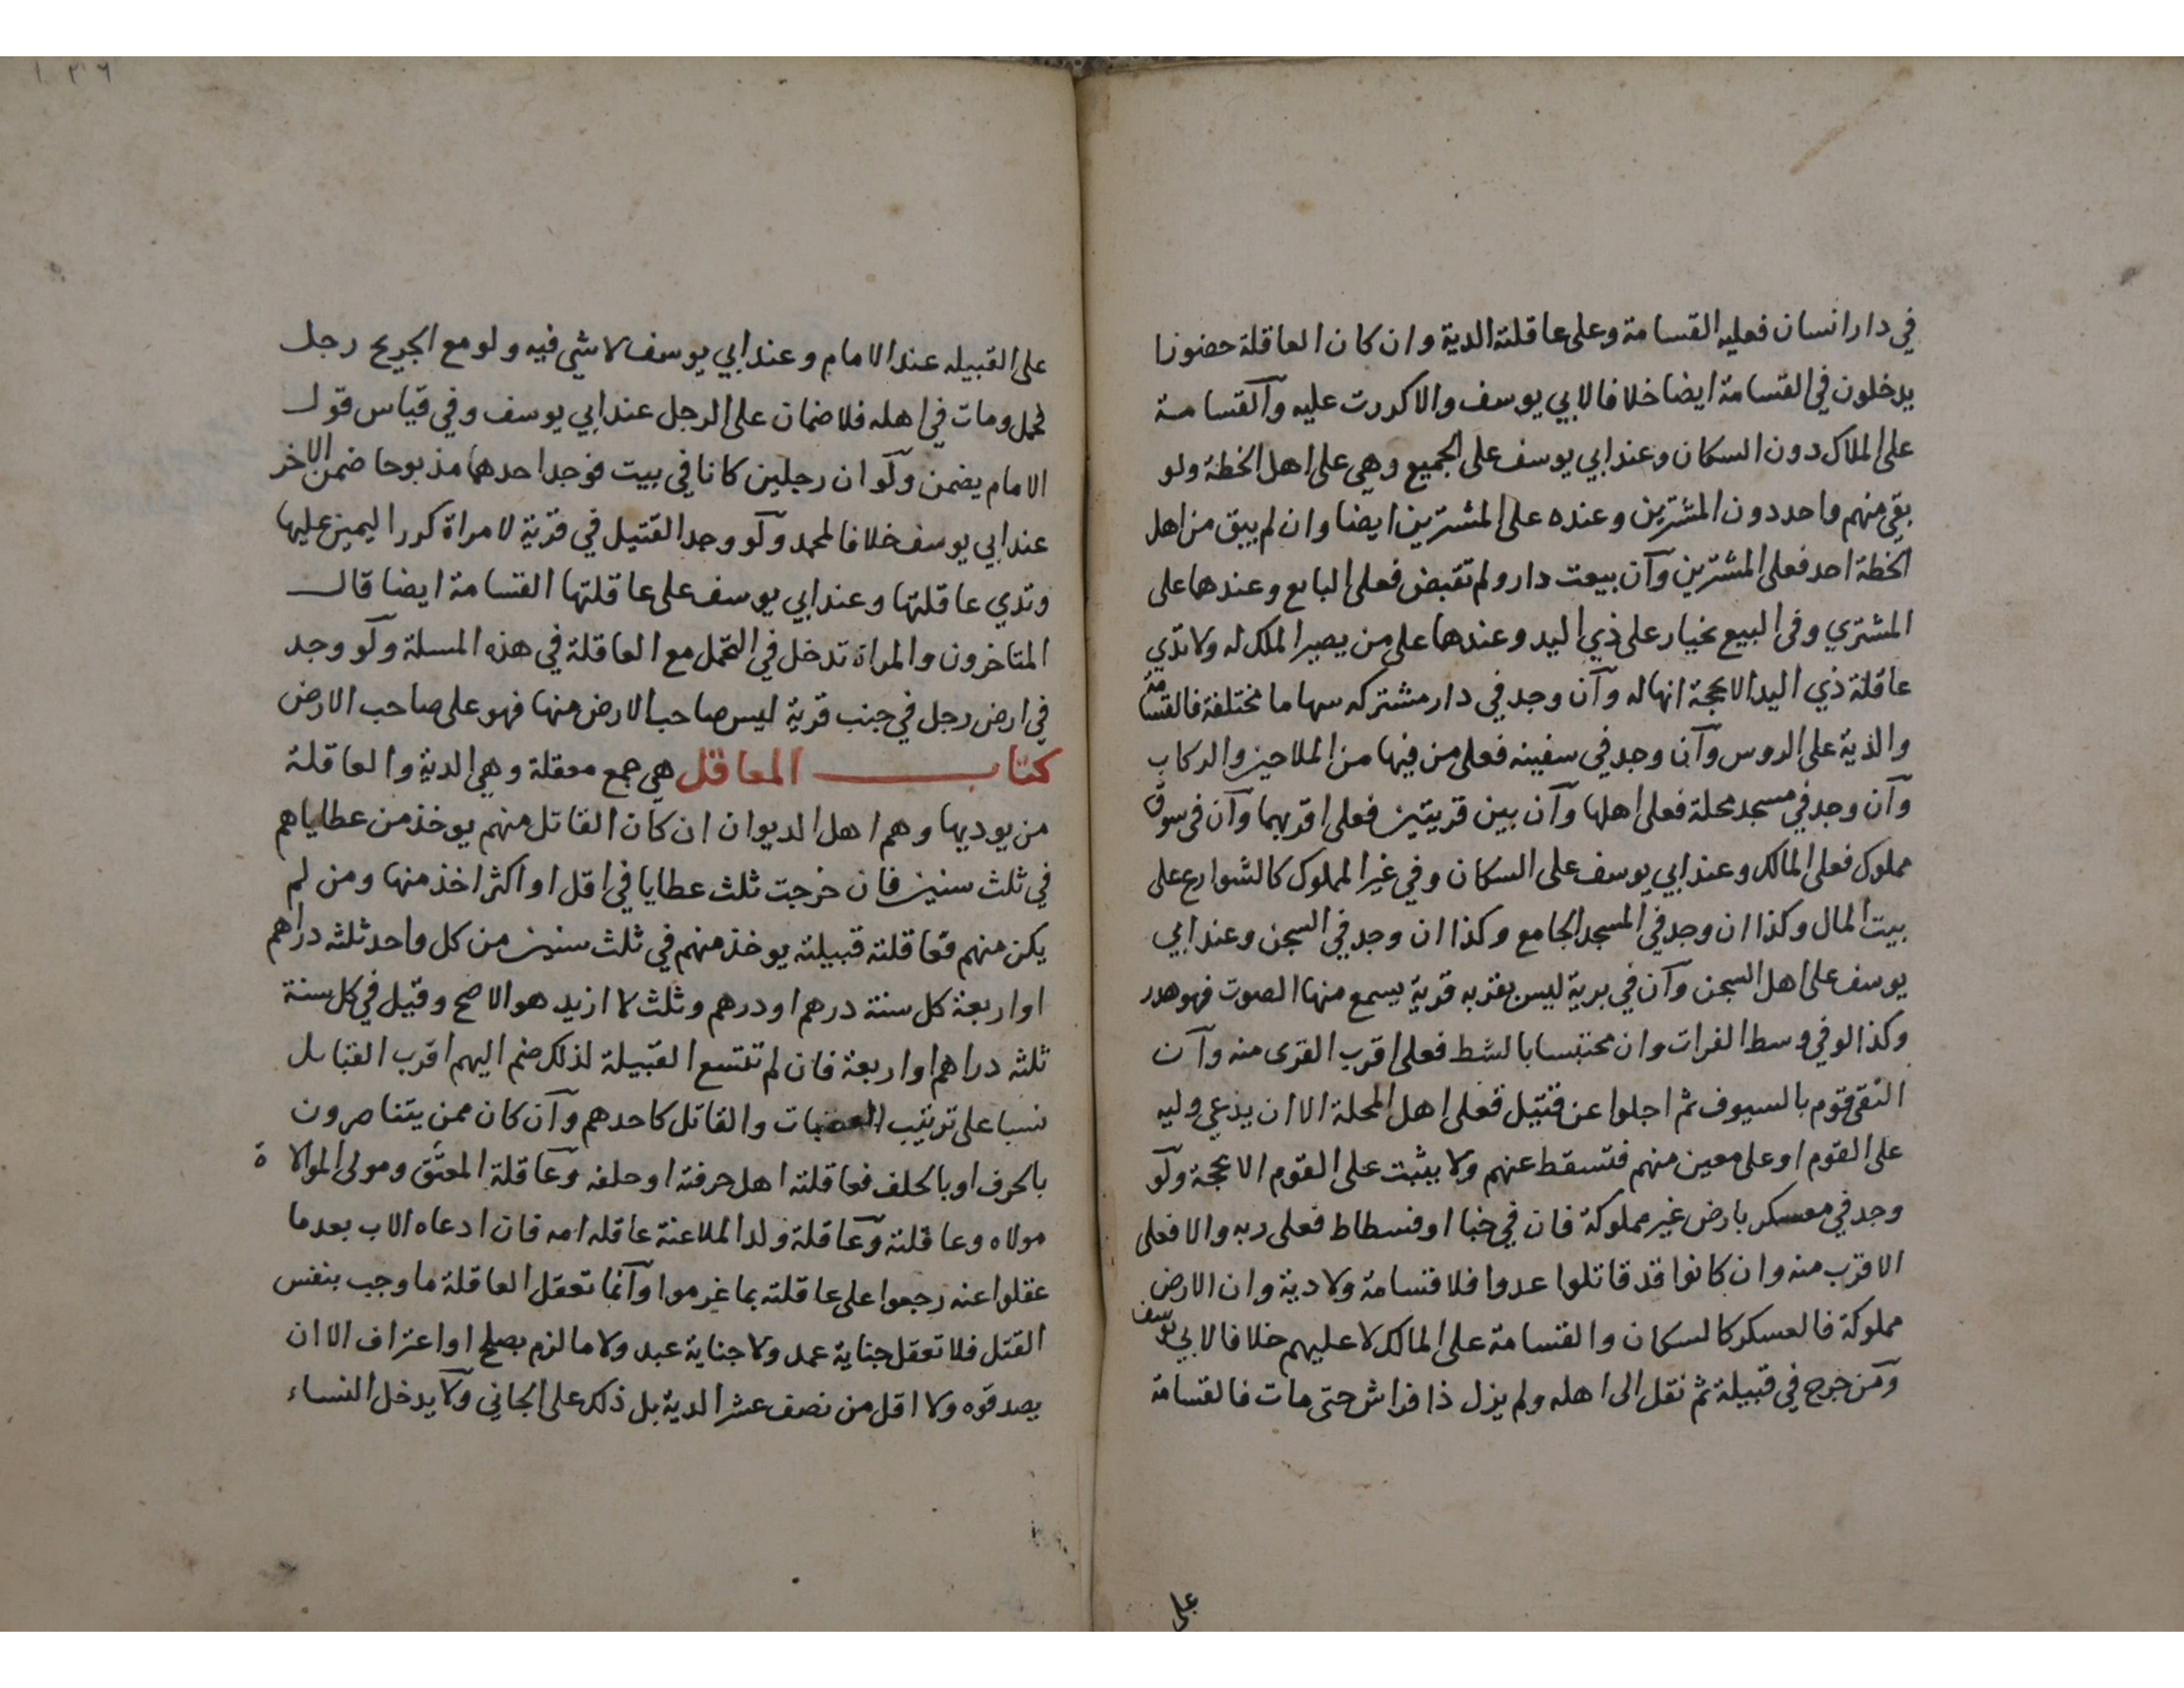 في دار انسان فعليه القسامة وعلى عاقلته الدية وان كان العاقلة حضورا
يدخلون في القسامة ايضا خلافا لابي يوسف والا كررت عليه والقسامة
على الملاك دون السكان وعند ابي يوسف على الجميع وهي على اهل الخطة ولو
بقي منهم واحد دون المشترين وعنده على المشترين ايضا وان لم يبق من اهل
الخطة احد فعلى المشترين وان بيعت دار ولم تقبض فعلى البايع وعندهما على
المشتري وفي البيع بخيار على ذي اليد وعندهما على من يصير الملك له ولا تدي
عاقلة ذي اليد الا بحجة انها له وان وجد في دار مشتركه سهاما مختلفة فالقسامة
والدية على الروس وان وجد في سفينه فعلى من فيها من الملاحين والركاب
وان وجد في مسجد محلة فعلى اهلها وان بين قريتين فعلى اقربهما وان في سوق
مملوك فعلى المالك وعند ابي يوسف على السكان وفي غير المملوك كالشوارع على
بيت المال وكذا ان وجد في المسجد الجامع وكذا ان وجد في السجن وعند ابي
يوسف على اهل السجن وان في برية ليس بقربه قرية يسمع منها الصوت فهو هدر
وكذا لو في وسط الفرات وان محتبسا بالشط فعلى اقرب القرى منه وان
التقى قوم بالسيوف ثم اجلوا عن قتيل فعلى اهل المحلة الا ان يدعي وليه
على القوم او على معين منهم فتسقط عنهم ولا يثبت على القوم الا بحجة ولو
وجد في معسكر بارض غير مملوكة فان في خبا او فسطاط فعلى ربه والا فعلى
الاقرب منه وان كانوا قد قاتلوا عدوا فلا قسامة ولا دية وان الارض
مملوكة فالعسكر كالسكان والقسامة على المالك لا عليهم خلافا لابي يوسف
ومن جرح في قبيلة ثم نقل الى اهله ولم يزل ذا فراش حتى مات فالقسامة
على
١٣٦
على القبيله عند الامام وعند ابي يوسف لا شي فيه ولو مع الجريح رجل
فحمل ومات في اهله فلا ضمان على الرجل عند ابي يوسف وفي قياس قول
الامام يضمن ولو ان رجلين كانا في بيت فوجد احدهما مذبوحا ضمن الاخر
عند ابي يوسف خلافا لمحمد ولو وجد القتيل في قرية لامراة كرر اليمين عليها
وتدي عاقلتها وعند ابي يوسف على عاقلتها القسامة ايضا قال
المتاخرون والمراة تدخل في التحمل مع العاقلة في هذه المسلة ولو وجد
في ارض رجل في جنب قرية ليس صاحب الارض منها فهو على صاحب الارض
كتاب المعاقل هي جمع معقلة وهي الدية والعاقلة
من يوديها وهم اهل الديوان ان كان القاتل منهم يوخذ من عطاياهم
في ثلث سنين فان خرجت ثلث عطايا في اقل او اكثر اخذ منها ومن لم
يكن منهم فعاقلته قبيلته يوخذ منهم في ثلث سنين من كل واحد ثلثه دراهم
او اربعة كل سنة درهم او درهم وثلث لا ازيد هو الاصح وقيل في كل سنة
ثلثه دراهم او اربعة فان لم تتسع القبيلة لذلك ضم اليهم اقرب القبايل
نسبا على ترتيب العصبات والقاتل كاحدهم وان كان ممن يتناصرون
بالحرف او بالحلف فعاقلته اهل حرفته او حلفه وعاقلة المعتق ومولى الموالاة
مولاه وعاقلته وعاقلة ولد الملاعنة عاقله امه فان ادعاه الاب بعد ما
عقلوا عنه رجعوا على عاقلته بما غرموا وانما تعقل العاقلة ما وجب بنفس
القتل فلا تعقل جناية عمد ولا جناية عبد ولا ما لزم بصلح او اعتراف الا ان
يصدقوه ولا اقل من نصف عشر الدية بل ذلك على الجاني ولا يدخل النساء